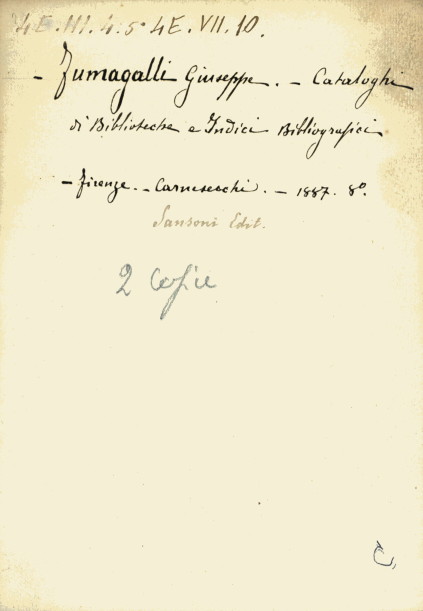 4E.III.4.5 4E.VII.10.
- Fumagalli Giuseppe. - Cataloghi
di Biblioteche e Indici Bibliografici
- Firenze. - Carnesecchi. - 1887. 8º.
Sansoni Edit.
2 copie
C,